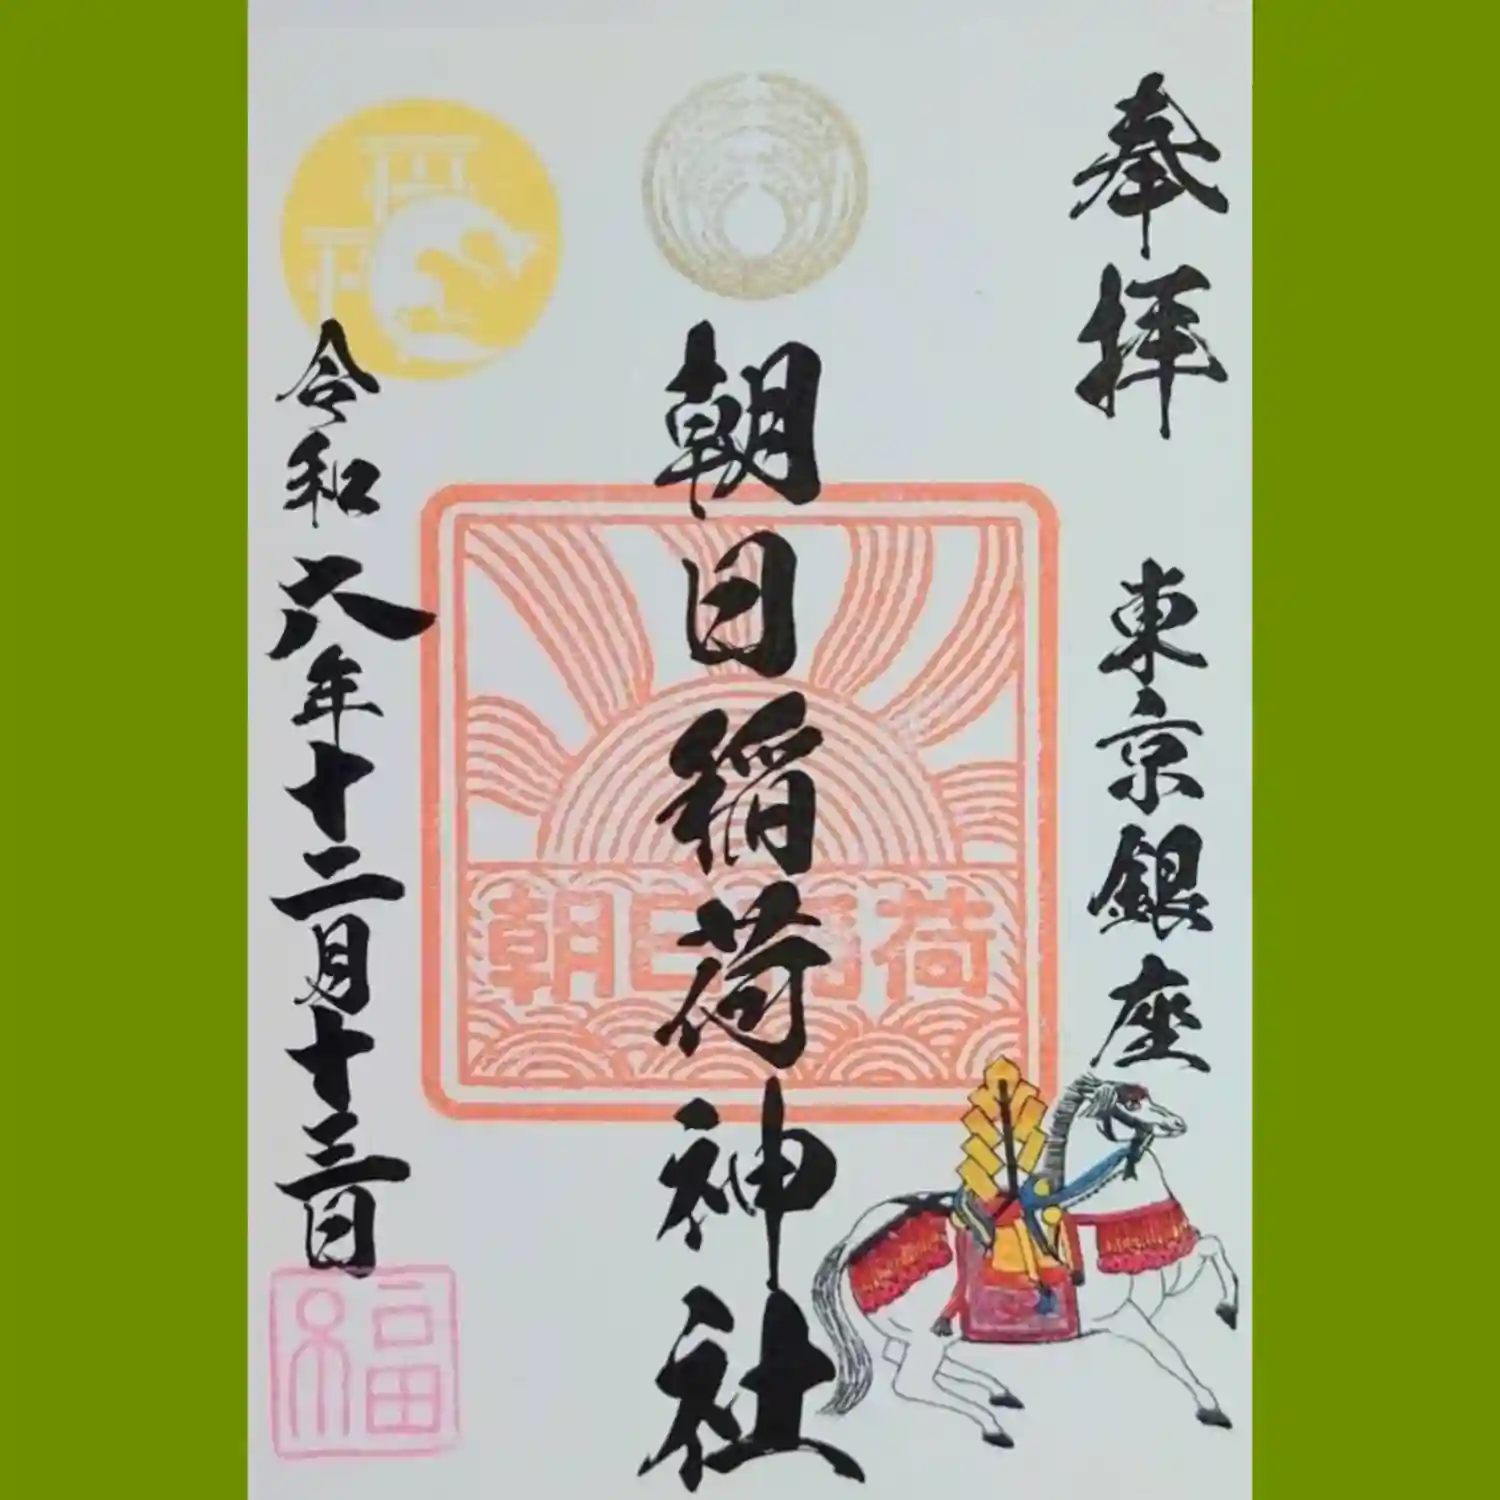 奉拝
東京銀座
朝日稲荷神社
朝日稲荷
令和六年十二月十三日
福